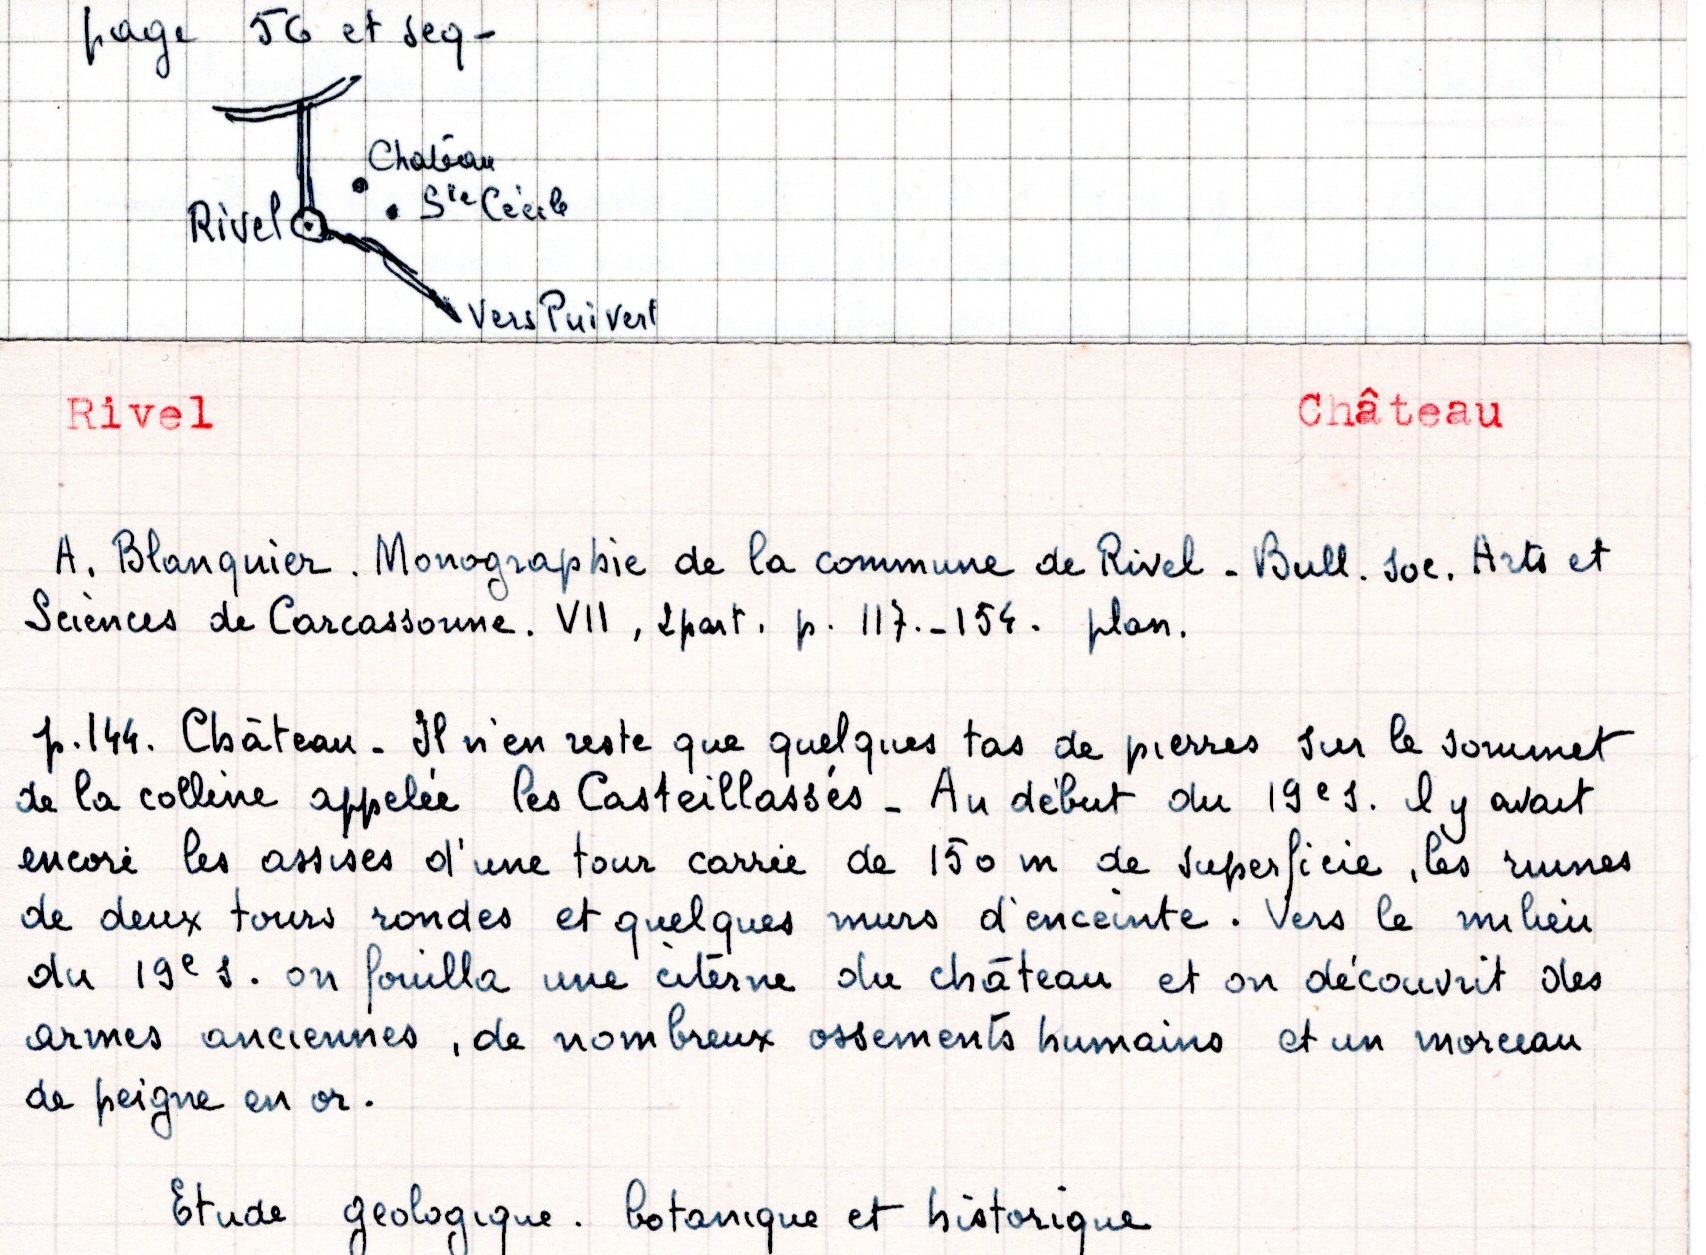 page 56 et seq-
Château
Ste Cécile
Rivel
Vers Puivert
Rivel Château
A. Blanquier. Monographie de la commune de Rivel - Bull. Soc. Arts et
Sciences de Carcassonne. VII, 2 part. p. 117.-154. plan.
p.144. Château - Il n'en reste que quelques tas de pierres sur le sommet
de la colline appelée les Casteillassés - Au début du 19e s. il y avait
encore les assises d'une tour carrée de 150 m de superficie, les ruines
de deux tours rondes et quelques murs d'enceinte. Vers le milieu
du 19e s. on fouilla une citerne du château et on découvrit des
armes anciennes, de nombreux ossements humains et un morceau
de peigne en or.
Etude géologique. botanique et historique